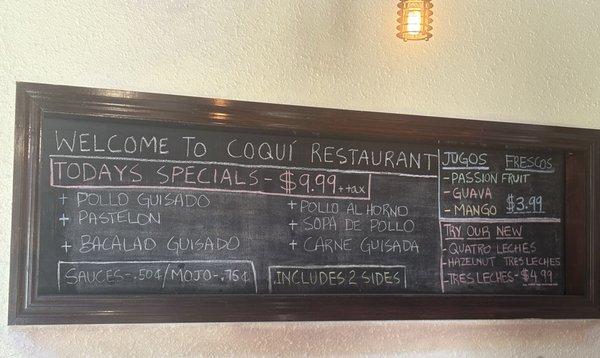 WELCOME TO COQUÍ RESTAURANT
TODAYS SPECIALS - $9.99 + tax
+ POLLO GUISADO
+ PASTELON
+ BACALAO GUISADO
+ POLLO AL HORNO
+ SOPA DE POLLO
+ CARNE GUISADA
SAUCES-.50¢/MOJO-.75¢
INCLUDES 2 SIDES
JUGOS FRESCOS
- PASSION FRUIT
- GUAVA
- MANGO $3.99
TRY OUR NEW
- QUATRO LECHES
- HAZELNUT TRES LECHES
- TRES LECHES - $4.99